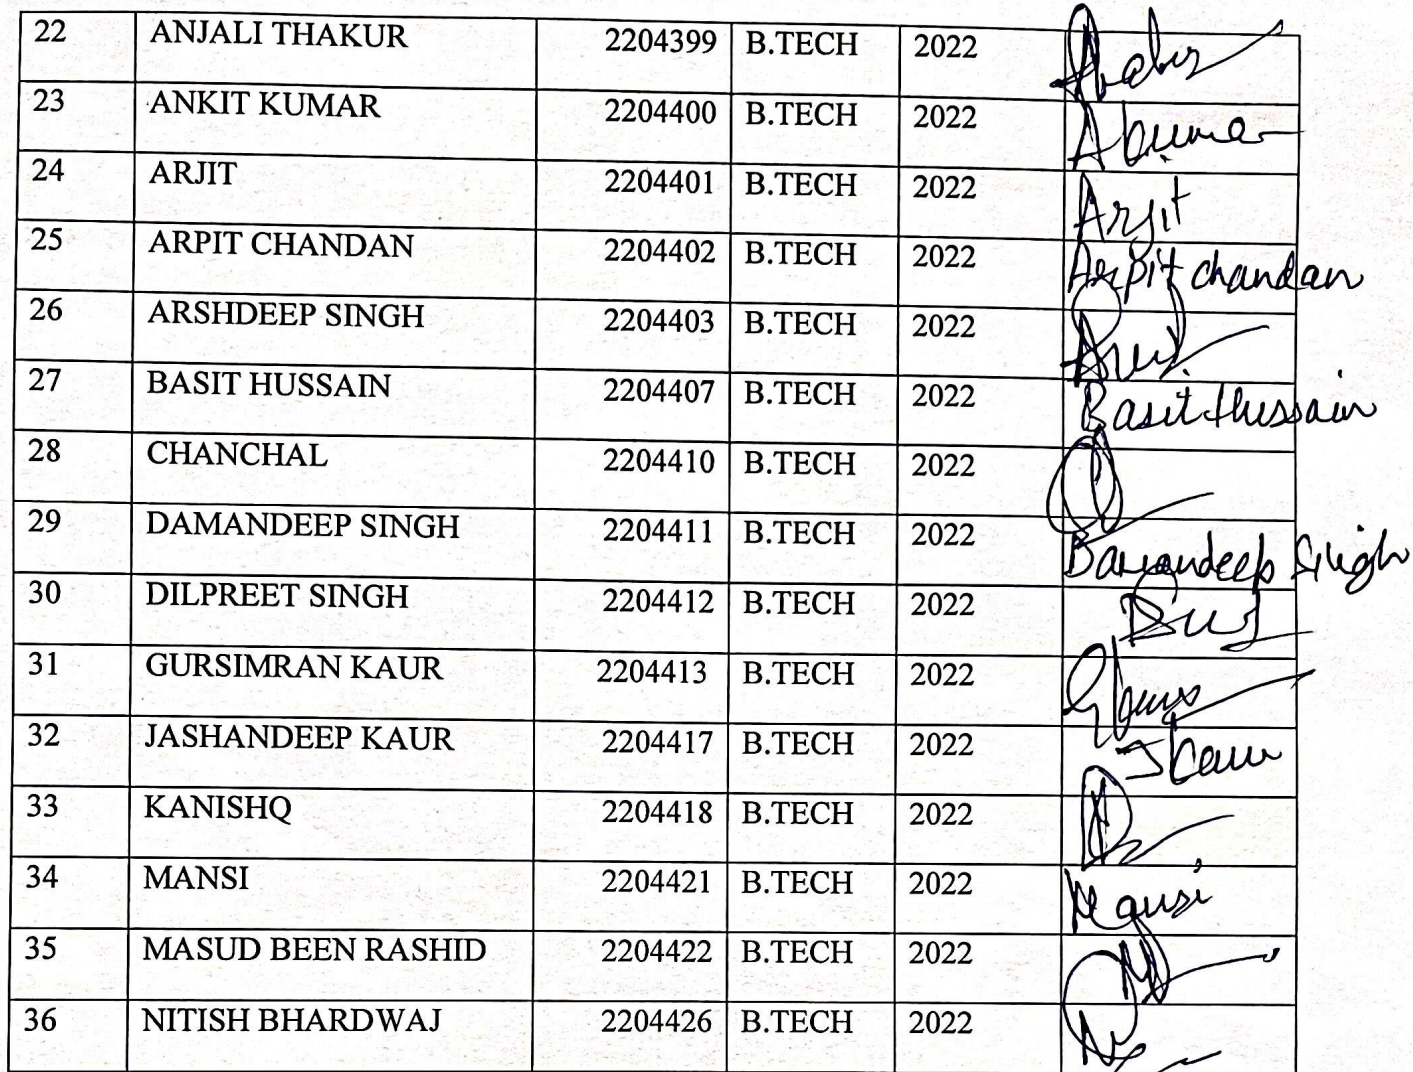 22 ANJALI THAKUR 2204399 B.TECH 2022
23 ANKIT KUMAR 2204400 B.TECH 2022 Akumar
24 ARJIT 2204401 B.TECH 2022 Arjit
25 ARPIT CHANDAN 2204402 B.TECH 2022 Arpit chandan
26 ARSHDEEP SINGH 2204403 B.TECH 2022
27 BASIT HUSSAIN 2204407 B.TECH 2022 Basit Hussain
28 CHANCHAL 2204410 B.TECH 2022
29 DAMANDEEP SINGH 2204411 B.TECH 2022 Singh
30 DILPREET SINGH 2204412 B.TECH 2022
31 GURSIMRAN KAUR 2204413 B.TECH 2022
32 JASHANDEEP KAUR 2204417 B.TECH 2022 JKaur
33 KANISHQ 2204418 B.TECH 2022
34 MANSI 2204421 B.TECH 2022 Mansi
35 MASUD BEEN RASHID 2204422 B.TECH 2022
36 NITISH BHARDWAJ 2204426 B.TECH 2022